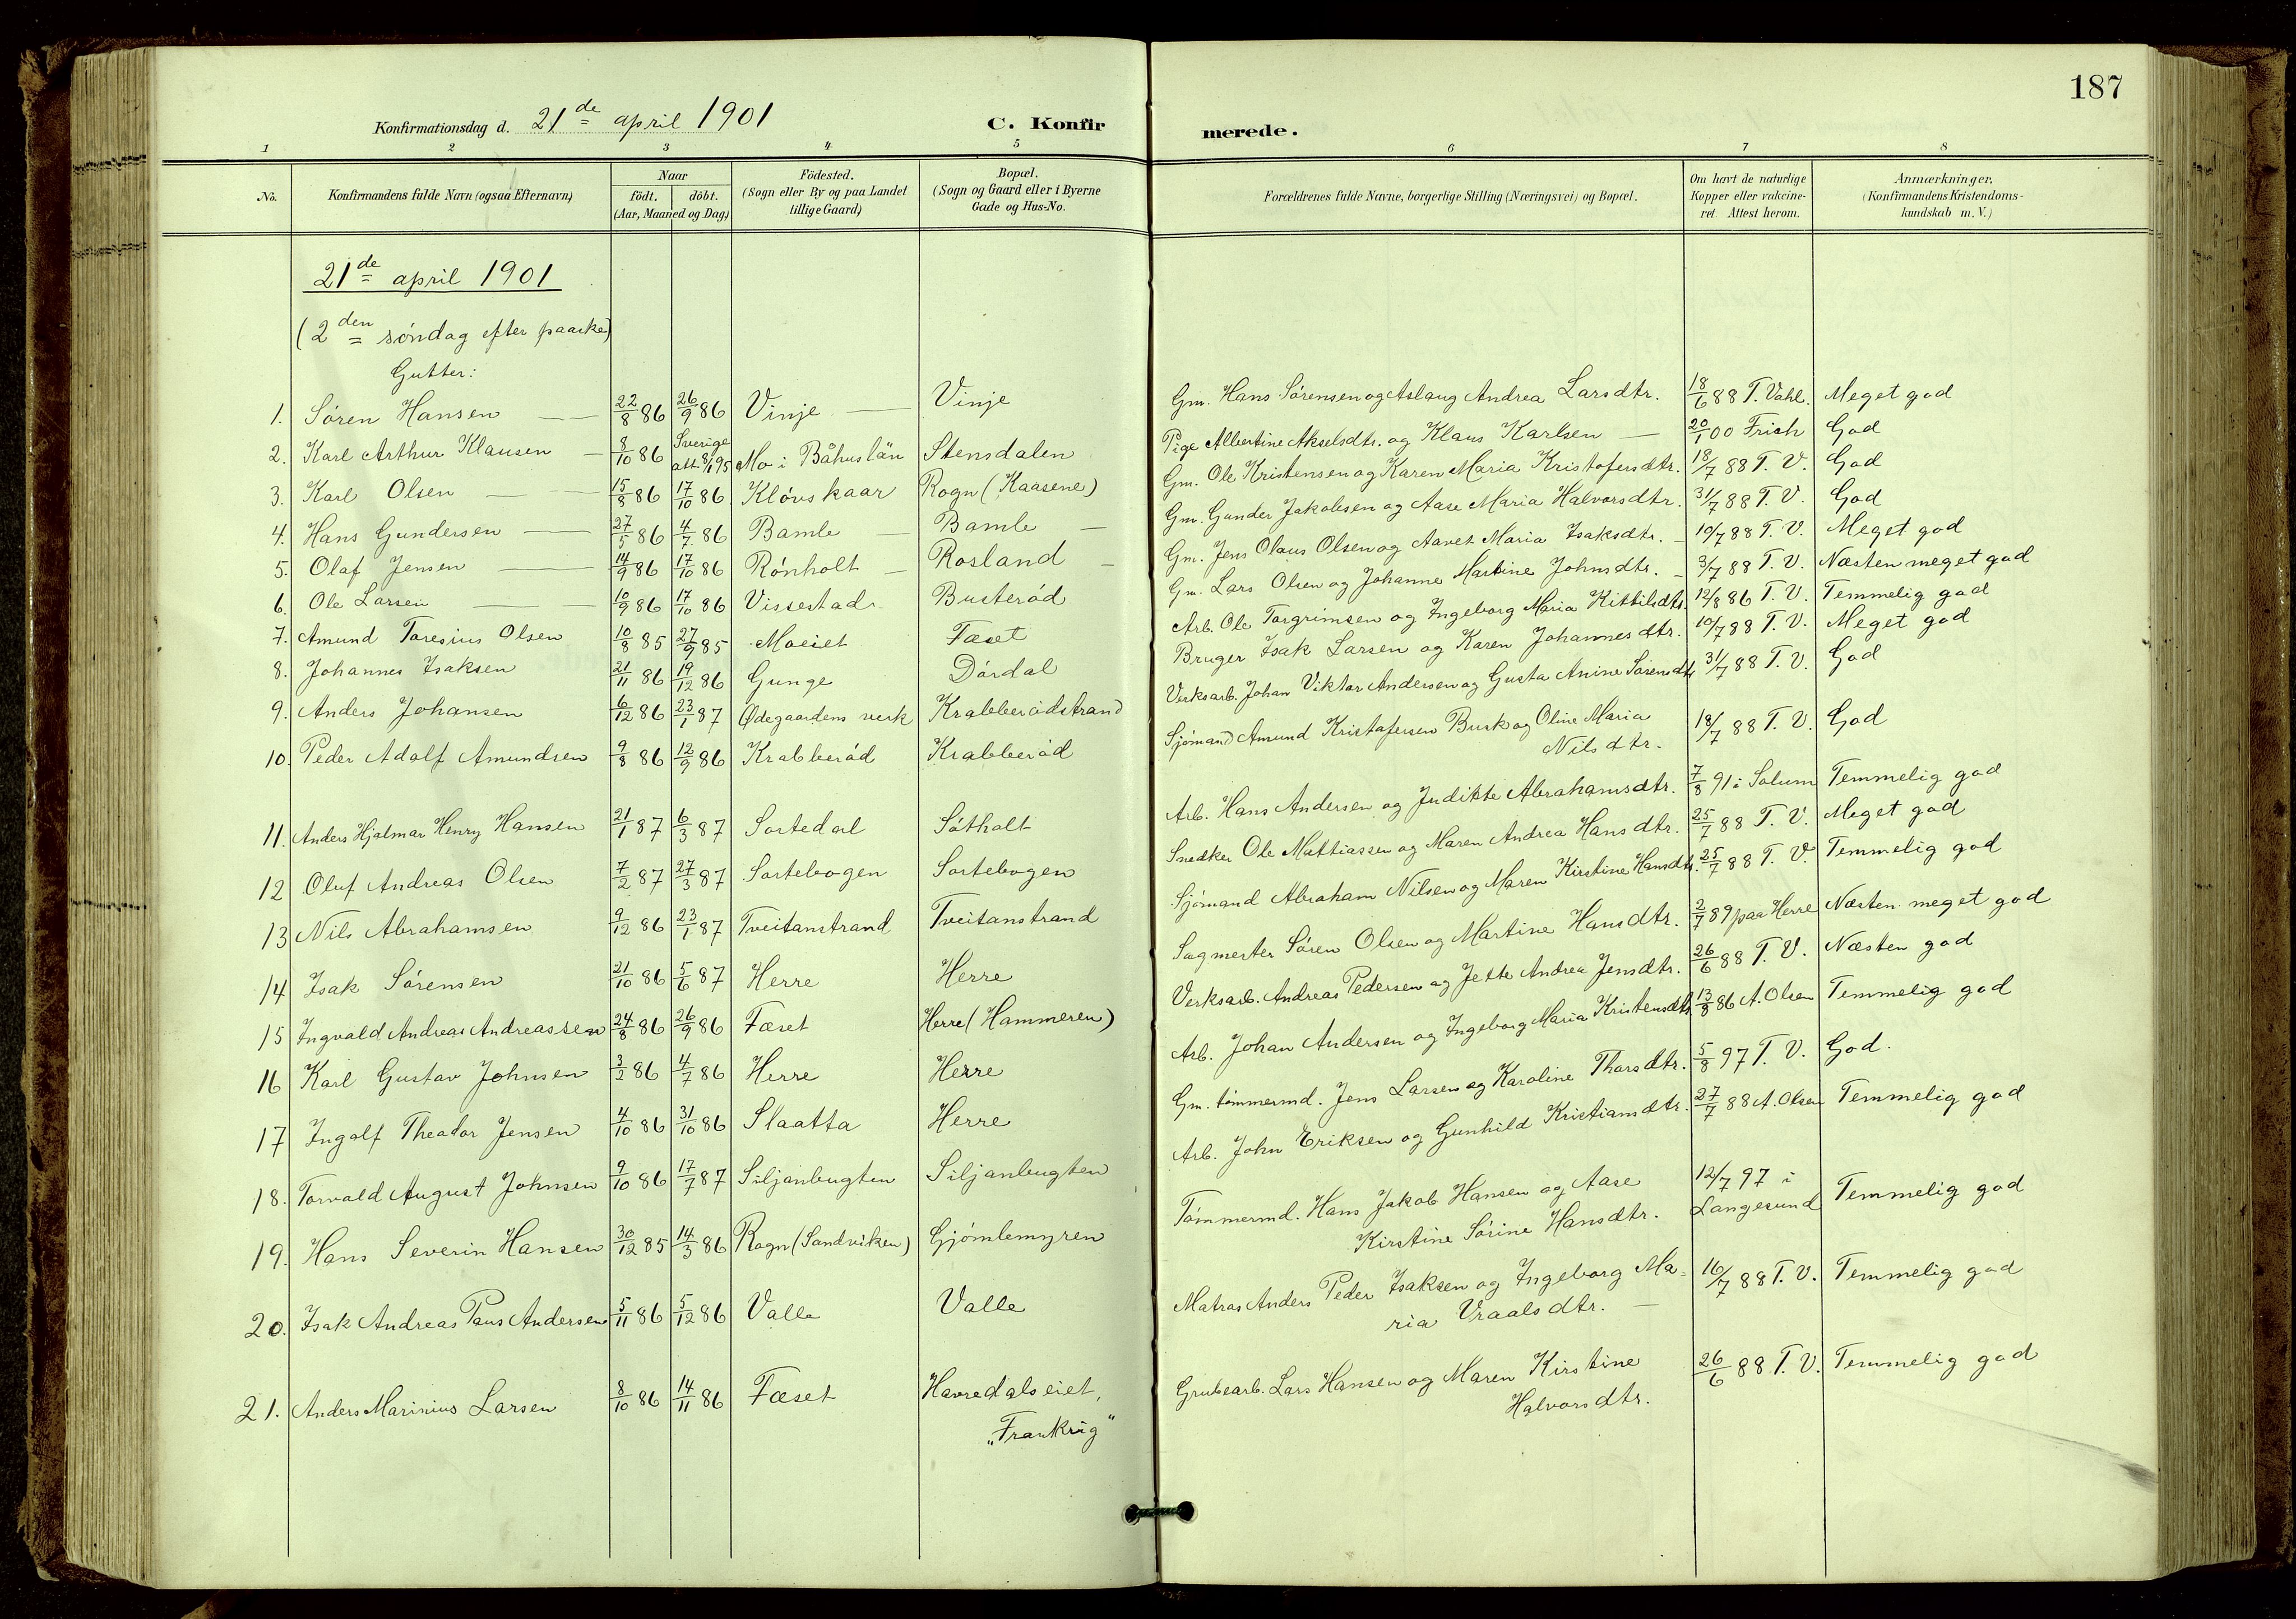 187
Konfirmationsdag d. 21de april 1901 C. Konfirmerede.
1 2 3 4 5 6 7 8
No. Konfirmandens fulde Navn (ogsaa Efternavn) Naar födt. döbt. (Aar, Maaned og Dag) Födested. (Sogn eller By og paa Landet tillige Gaard) Bopæl. (Sogn og Gaard eller i Byerne Gade og Hus-No. Forældrenes fulde Navne, borgerlige Stilling (Næringsvei) og Bopæl. Om havt de naturlige Kopper eller vakcineret. Attest herom. Anmærkninger. (Konfirmandens Kristendomskundskab m. V.)
21de april 1901
(2den söndag efter paaske)
Gutter:
1. Sören Hansen 22/8 86 26/9 86 Vinje Vinje Gm. Hans Sörensen og Aslaug Andrea Larsdtr. 18/6 88 T. Vahl. Meget god
2. Karl Arthur Klausen 8/10 86 Sverige att. 8/1 95 Mo i Båhuslän Stensdalen Pige Albertine Akselsdtr. og Klaus Karlsen 20/1 00 Frich God
3. Karl Olsen 15/8 86 17/10 86 Klövskaar Rogn (Kaasene) Gm. Ole Kristensen og Karen Maria Kristofersdtr. 18/7 88 T. V. God
4. Hans Gundersen 27/5 86 4/7 86 Bamle Bamle Gm. Gunder Jakobsen og Aase Maria Halvorsdtr. 31/7 88 T. V. God
5. Olaf Jensen 14/9 86 17/10 86 Rönholt Rosland Gm. Jens Olaus Olsen og Aavet Maria Isaksdtr. 10/7 88 T. V. Meget god
6. Ole Larsen 10/9 86 17/10 86 Vissestad Busteröd Gm. Lars Olsen og Johanne Martine Johnsdtr. 3/7 88 T. V. Næsten meget god
7. Amund Toresius Olsen 10/8 85 27/9 85 Moeiet Fæset Arb. Ole Torgrimsen og Ingeborg Maria Kittilsdtr. 12/8 86 T. V. Temmelig god
8. Johannes Isaksen 21/11 86 19/12 86 Gunge Dördal Bruger Isak Larsen og Karen Johannesdtr. 10/7 88 T. V. Meget god
9. Anders Johansen 6/12 86 23/1 87 Ødegaardens verk Krabberödstrand Verksarb. Johan Viktor Andersen og Gusta Anine Sörensdtr. 31/7 88 T. V. God
10. Peder Adolf Amundsen 9/8 86 12/9 86 Krabberöd Krabberöd Sjömand Amund Kristofersen Busk og Oline Maria 18/7 88 T. V. God
Nilsdtr.
11. Anders Hjalmar Henry Hansen 21/1 87 6/3 87 Sortedal Sötholt Arb. Hans Andersen og Judikte Abrahamsdtr. 7/8 91 i Solum Temmelig god
12 Oluf Andreas Olsen 7/2 87 27/3 87 Sortebogen Sortebogen Snedker Ole Mattiassen og Maren Andrea Hansdtr. 25/7 88 T. V. Meget god
13 Nils Abrahamsen 9/12 86 23/1 87 Tveitanstrand Tveitanstrand Sjömand Abraham Nilsen og Maren Kirstine Hansdtr. 25/7 88 T. V. Temmelig god
14 Isak Sörensen 21/10 86 5/6 87 Herre Herre Sagmester Sören Olsen og Martine Hansdtr. 2/7 89 paa Herre Næsten meget god
15 Ingvald Andreas Andreassen 24/8 86 26/9 86 Fæset Herre (Hammeren) Verksarb. Andreas Pedersen og Jette Andrea Jensdtr. 26/6 88 T. V. Næsten god
16 Karl Gustav Johnsen 3/2 86 4/7 86 Herre Herre Arb. Johan Andersen og Ingeborg Maria Kristensdtr. 13/8 86 A. Olsen Temmelig god
17 Ingolf Theodor Jensen 4/10 86 31/10 86 Slaatta Herre Gm. tömmermd. Jens Larsen og Karoline Thorsdtr. 5/8 97 T. V. God.
18. Torvald August Johnsen 9/10 86 17/7 87 Siljanbugten Siljanbugten Arb. John Eriksen og Gunhild Kristiansdtr. 27/7 88 A. Olsen Temmelig god
19. Hans Severin Hansen 30/12 85 14/3 86 Rogn (Sandviken) Gjömlemyren Tömmermd. Hans Jakob Hansen og Aase 12/7 97 i Temmelig god
Kirstine Sörine Hansdtr. Langesund
20. Isak Andreas Paus Andersen 5/11 86 5/12 86 Valle Valle Matros Anders Peder Isaksen og Ingeborg Ma- 16/7 88 T. V. Temmelig god
ria Vraalsdtr.
21. Anders Marinius Larsen 8/10 86 14/11 86 Fæset Havredalseiet, Grubearb. Lars Hansen og Maren Kirstine 26/6 88 T. V. Temmelig god
„Frankrig" Halvorsdtr.